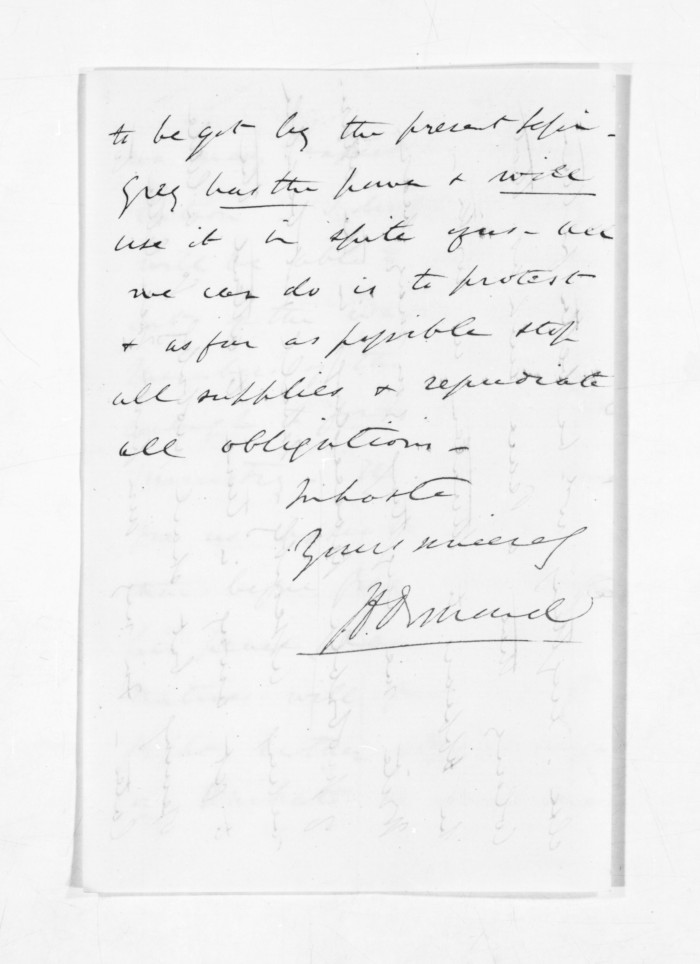 to be got by the present
Grey has the power & will
use it in spite of us - all
we can do is to protest
& as far as possible stop
all supplies & repudiate
all obligations -
In haste
Yours sincerely
J.D. Ormond